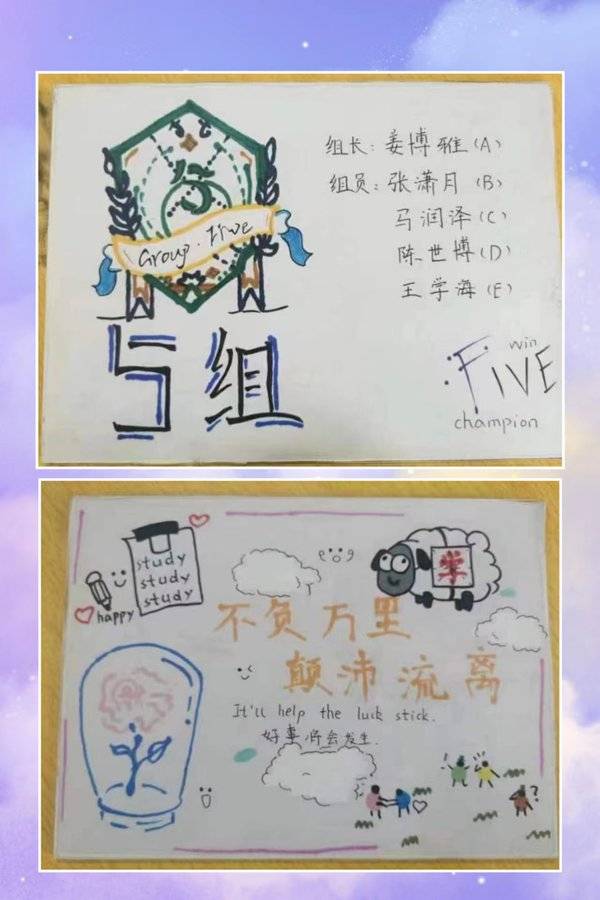 5
Group. Five
5组
组长：姜博雅(A)
组员：张潇月(B)
马润泽(C)
陈世博(D)
王学海(E)
win
FIVE
champion
study
study
study
happy
学
不负万里
颠沛流离
It'll help the luck stick.
好事将会发生.
?